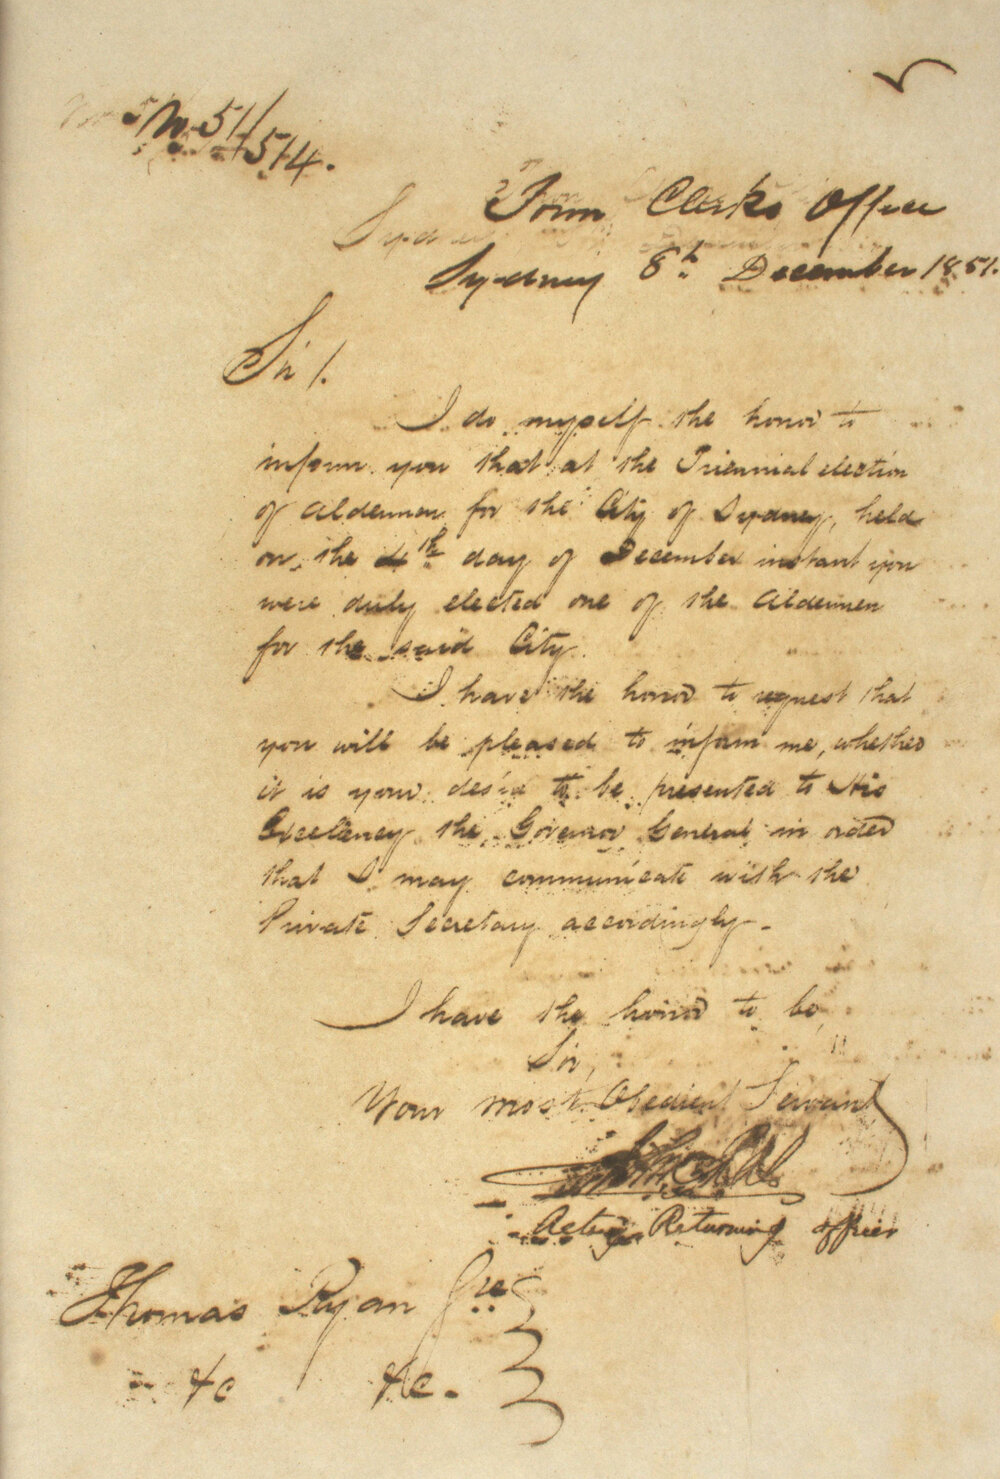 No. 51/
514.
Town Clerks Office
Sydney 8th December 1851.
Sir /.
I do myself the honor to
inform you that at the Triennial election
of Aldermen for the City of Sydney, held
on the 4th day of December instant you
were duly elected one of the Aldermen
for the said City.
I have the honor to request that
you will be pleased to inform me, whether
it is your desire to be presented to His
Excellency the Governor General in order
that I may communicate with the
Private Secretary accordingly -
I have the honor to be
Sir,
Your most Obedient Servant
Acting Returning officer
Thomas Ryan
&c &c.